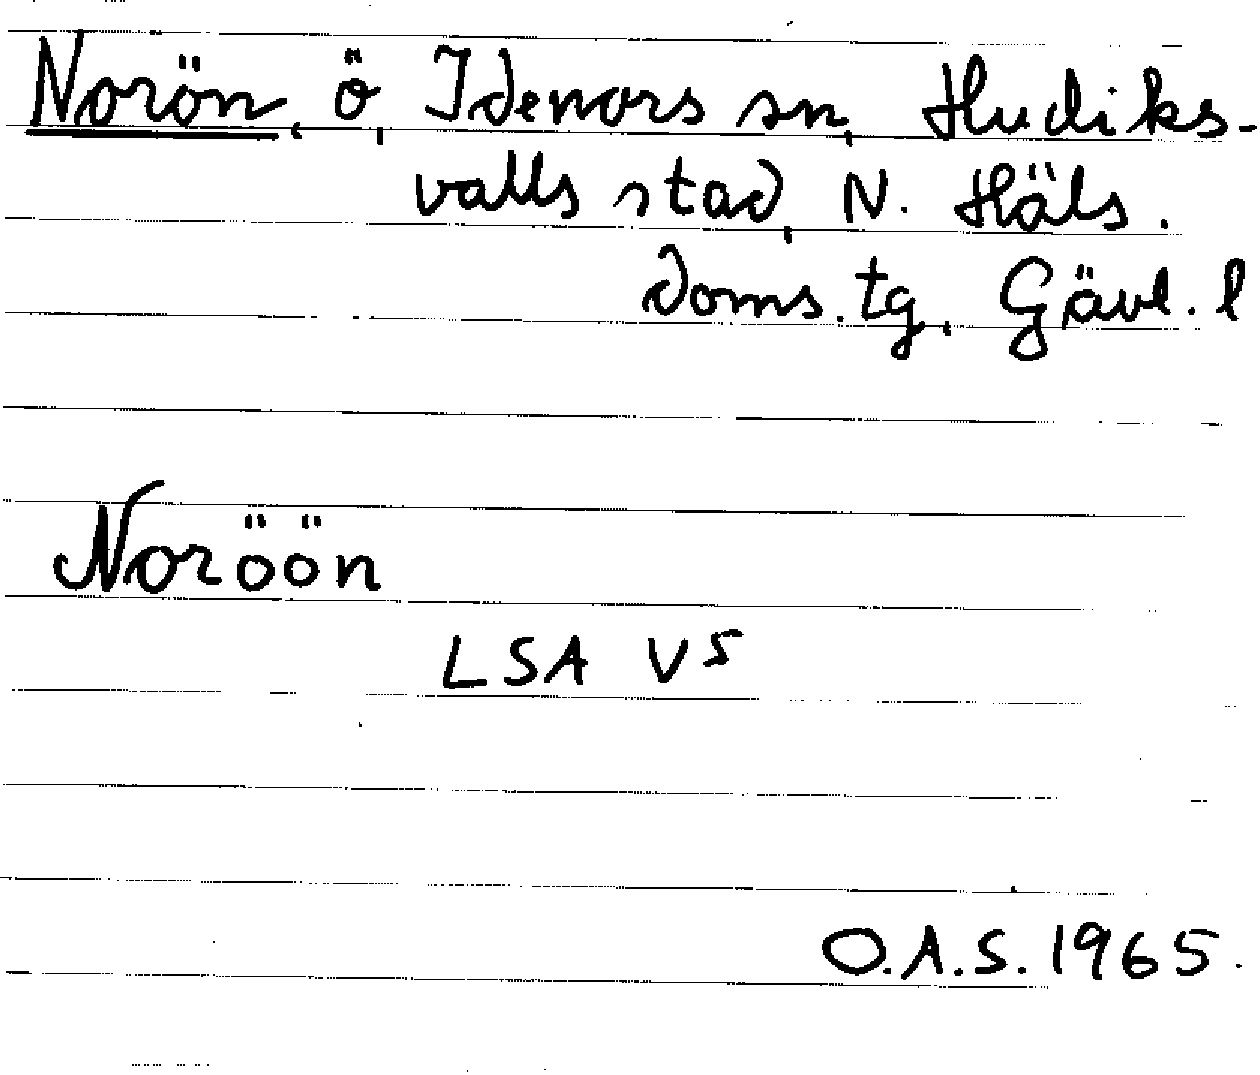 Norön, ö, Idenors sn, Hudiks-
valls stad, N. Häls.
doms. tg, Gävl. l
Noröön
LSA V5
O.A.S. 1965.